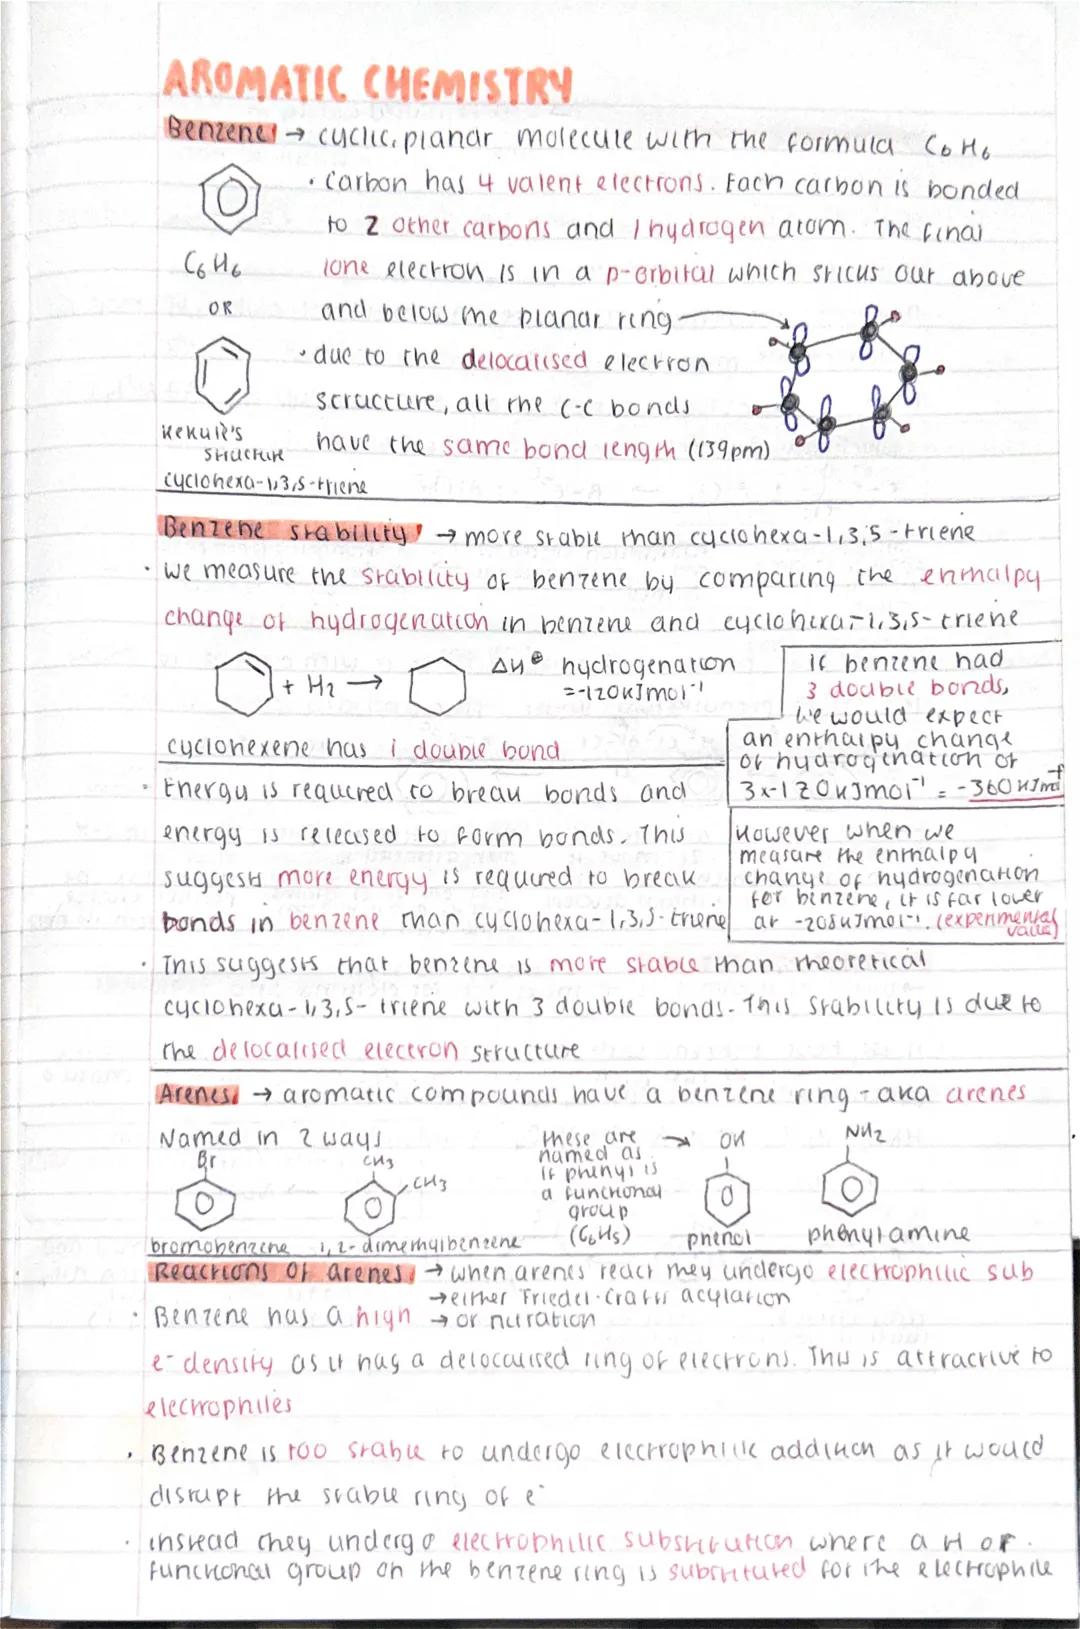 AROMATIC CHEMISTRY
Benzene → cyclic, planar molecule with the formula C6H6
• Carbon has 4 valent electrons. Each carbon is bonded
to 2 other carbons and 1 hydrogen atom. The final
C6H6
lone electron is in a p-orbital which sticks out above
OR
and below the planar ring
• due to the delocalised electron
structure, all the C-C bonds
Kekulé's
structure
have the same bond length (139pm)
cyclohexa-1,3,5-triene
Benzene stability → more stable than cyclohexa-1,3,5-triene
• we measure the stability of benzene by comparing the enthalpy
change of hydrogenation in benzene and cyclohexa-1,3,5-triene
+ H2 →
ΔH⊖ hydrogenation
=-120kJmol-1
cyclohexene has 1 double bond
If benzene had
3 double bonds,
we would expect
an enthalpy change
of hydrogenation of
3x-120kJmol-1 = -360kJmol-1
• Energy is required to break bonds and
energy is released to form bonds. This
suggests more energy is required to break
bonds in benzene than cyclohexa-1,3,5-triene
However when we
measure the enthalpy
change of hydrogenation
for benzene, it is far lower
at -208kJmol-1. (experimental
value)
• This suggests that benzene is more stable than theoretical
cyclohexa-1,3,5-triene with 3 double bonds. This stability is due to
the delocalised electron structure
Arenes → aromatic compounds have a benzene ring - aka arenes
Named in 2 ways
Br
CH3
CH3
bromobenzene
1,2-dimethylbenzene
these are →
named as
if phenyl is
a functional
group
(C6H5)
OH
phenol
NH2
phenylamine
Reactions of arenes → when arenes react they undergo electrophilic sub
→ either Friedel-Crafts acylation
• Benzene has a high → or nitration
e- density as it has a delocalised ring of electrons. This is attractive to
electrophiles
• Benzene is too stable to undergo electrophilic addition as it would
disrupt the stable ring of e-
• instead they undergo electrophilic substitution where a H or
functional group on the benzene ring is substituted for the electrophile